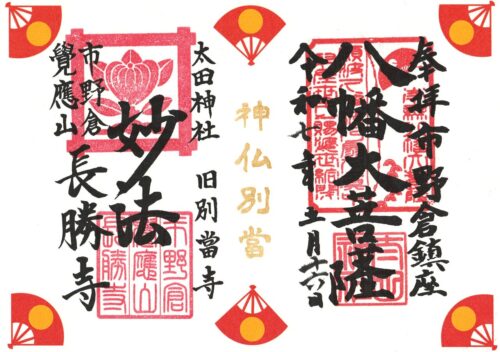 奉拝市野倉鎮座
八幡大菩薩
令和七年
神仏別當
太田神社 旧別當寺
妙法
市野倉
覺應山
長勝寺
市野倉
覺應山
長勝寺